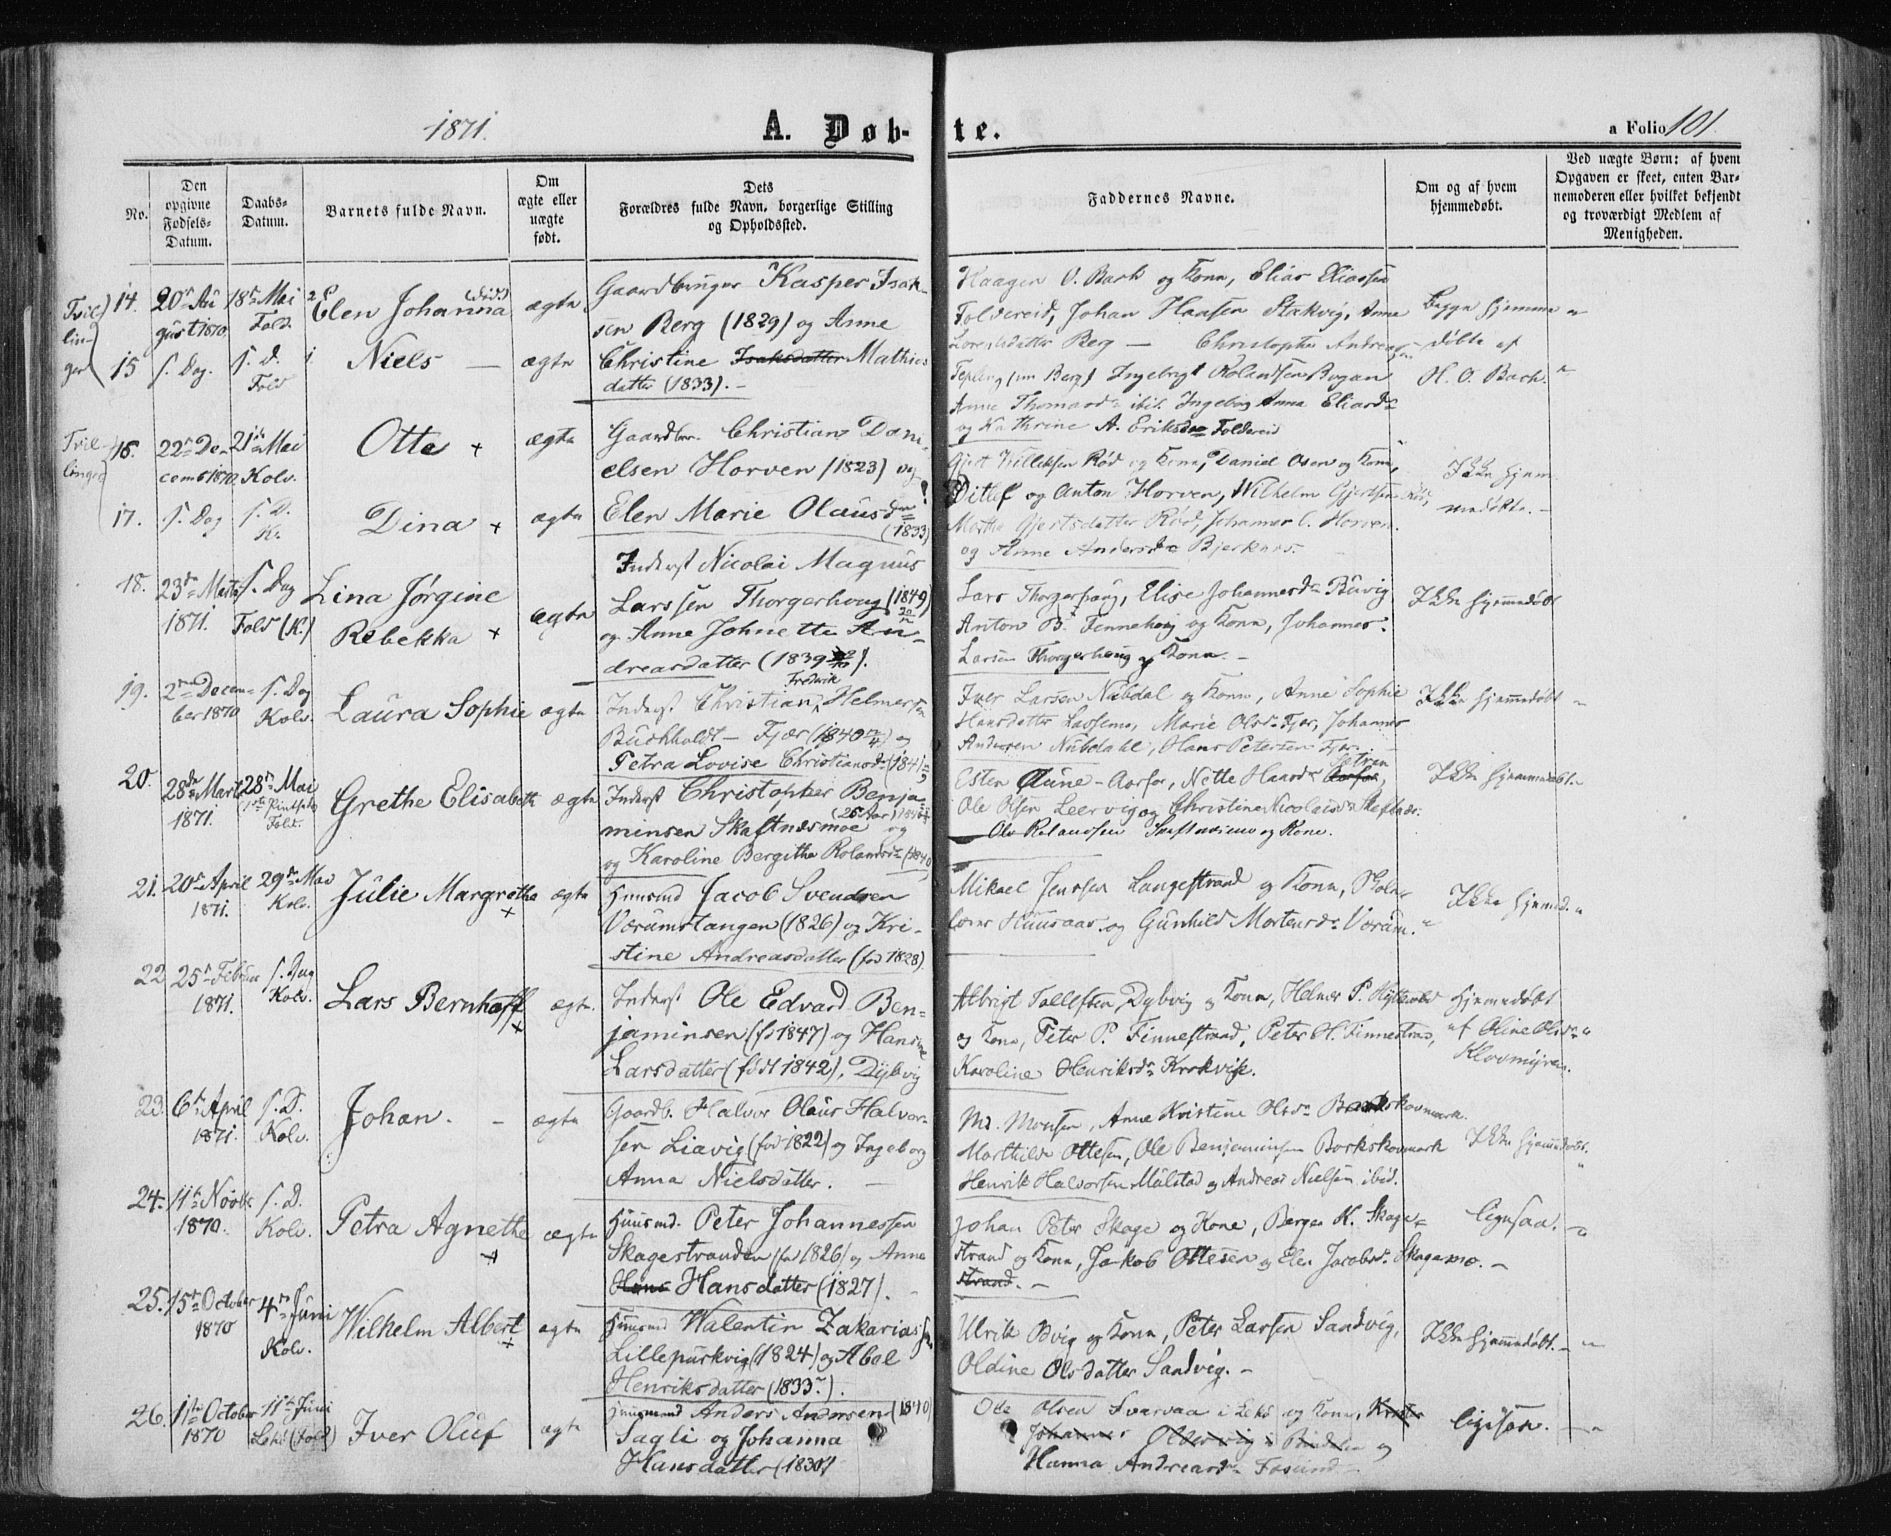 1871.
A. Døb-
te.
a Folio 101.
No.
Den opgivne Fødsels-Datum.
Daabs-Datum.
Barnets fulde Navn.
Om ægte eller uægte født.
Dets Forældres fulde Navn, borgerlige Stilling og Opholdssted.
Faddernes Navne.
Om og af hvem hjemmedøbt.
Ved uægte Børn: af hvem Opgaven er skeet, enten Barnemoderen eller hvilket bekjendt og troværdigt Medlem af Menigheden.
Tvil-
lin-
ger
14. 20de Au
gust 1870.
18de Mai
Fold.
Elen Johanna
ægte
Gaardbruger Kasper Isak-
sen Berg (1829) og Anne
Haagen O. Bach og Kone, Elias Eliassen
Foldereid, Johan Hansen Stakvig, Anne
Begge hjemme
15 s. Dag.
s. D.
Fold
Niels —
ægte
Christine Isaksdatter Mathias
datter (1833). —
Lorentsdatter Berg — Christopher Andreas
Tepling (im Berg) Ingebrigt Rolandsen Bogan
Anne Thomasd. ibid. Ingeborg Anna Eliasd.
og Kathrine A. Eriksd. Foldereid
døbte af
H. O. Bach.
Tvil-
linger
16. 22de De-
cemb 1870
21de Mai
Kolv.
Otte +
ægte
Gaardbr. Christian Dani-
elsen Horven (1823) og
Gjert Rød og Kone, Daniel Osen og Kone,
Ditlef og Anton Horven, Wilhelm Gjertsen Rød,
Ikke hjem
medøbte. —
17. s. Dag
s. D.
K.
Dina +
ægte
Elen Marie Olausd.
(1833)
Martha Gjertsdatter Rød, Johannes C. Horven.
og Anne Andersd. Bjerknes.
18. 23de Marts
1871.
s. Dag
Fold (K.)
Lina Jørgine
Rebekka +
ægte
Inderst Nicolai Magnus
Larssen Thorgerhoug (1849)
og Anne Johnette An-
dreasdatter (1839).
Lars Thorgerhaug, Elise Johannesd. Buvig
Anton B. Finnehoug og Kone, Johannes
Larsen Thorgerhoug og Kone. —
Ikke hjemmedøbt
19. 2den Decem-
ber 1870
s. Dag
Kolv.
Laura Sophie
ægte
Fredrik
Inderst Christian, Helmersen
Buchholdt — Fjær (1840) og
Petra Lovise Christiansd. (1841)
Iver Larsen Nubdal og Kone, Anne Sophie
Hansdatter, Marie Olsd. Fjær, Johannes
Andersen Nubdahl, Hans Petersen Fjær.
Ikke hjemmedøbt
20. 28de Marts
1871.
28de Mai
1ste Pintsed.
Fold.
Grethe Elisabeth
ægte
Inderst Christopher Benja-
minsen Skaftnæsmoe og
(25 Aar)
og Karoline Bergitha Rolandsd. (1840)
Esten Aune — Aarfor, Nette Hansd. Aarfor,
Ole Olsen Leervig og Christine Nicolaisd.
Ole Rolandsen og Kone.
Ikke hjemmedøbt.
21. 20de April
1871.
29de Mai
Kolv.
Julie Margrethe
+
ægte
Huusmd Jacob Svendsen
Værumstangen (1826) og Kri-
stine Andreasdatter (fød 1828).
Mikael Jenssen Langestrand og Kone, Skole-
lærer Huusaas og Gunhild Mortensd. Værum.
Ikke hjemmed.
22 25de Februar
1871.
s. Dag
Kolv.
Lars Bernhoff
+
ægte.
Inderst Ole Edvard Ben-
jaminsen (fd 1847) og Hansine
Larsdatter (født 1842), Dybvig
Albrigt Tollefsen Dybvig og Kone, Helmer P.
og Kone, Peter P. Finnestrand, Peter H. Finnestrand,
Karoline Henriksd. Krokvik.
Hjemmedøbt
af Oline Olsd.
Klovmyren.
23. 6te April
1871.
s. D.
Kolv.
Johan. —
ægte
Gaardb. Halvor Olaus Halvor-
sen Liavig (fød 1822) og Ingeborg
Anna Nielsdatter. —
Md. Monsen, Anne Kristine Olsd.
Marthilde Ottesen, Ole Benjaminsen Barkskovmark
Henrik Halvorsen Mulstad og Andreas Nielsen ibid.
Ikke hjemmedøbt.
24. 11te Novbr.
1870.
s. D.
Kolv.
Petra Agnethe
+
ægte
Huusmd. Peter Johannessen
Skagestranden (fød 1826) og Anne
Hans Hansdatter (1827).
Johan Peter Skage og Kone, Berger K. Skage-
strand og Kone, Jakob Ottesen og Elen Jacobsd. Skagemo. —
strand. —
ligesaa.
25. 15de October
1870
4de Juni
Kolv.
Wilhelm Albert
+
ægte
Huusmd Walentin Zakariassen
Lillepurkvig (1824) og Abel
Henriksdatter (1833).
Ulrik Edvig og Kone, Peter Larsen Sandvig,
Oldine Olsdatter Sandvig. —
Ikke hjemmedøbt. —
26. 1ste October
1870
11te Juni
Leka (Fold)
Iver Oluf
ægte
Huusmand Anders Andersen (1840)
Sagli og Johanna
Hansdatter (1830)
Ole Olsen Svarvaa i Leka og Kone,
Johannes i Bindalen og
Hanna Andreasd.
ligesaa. —